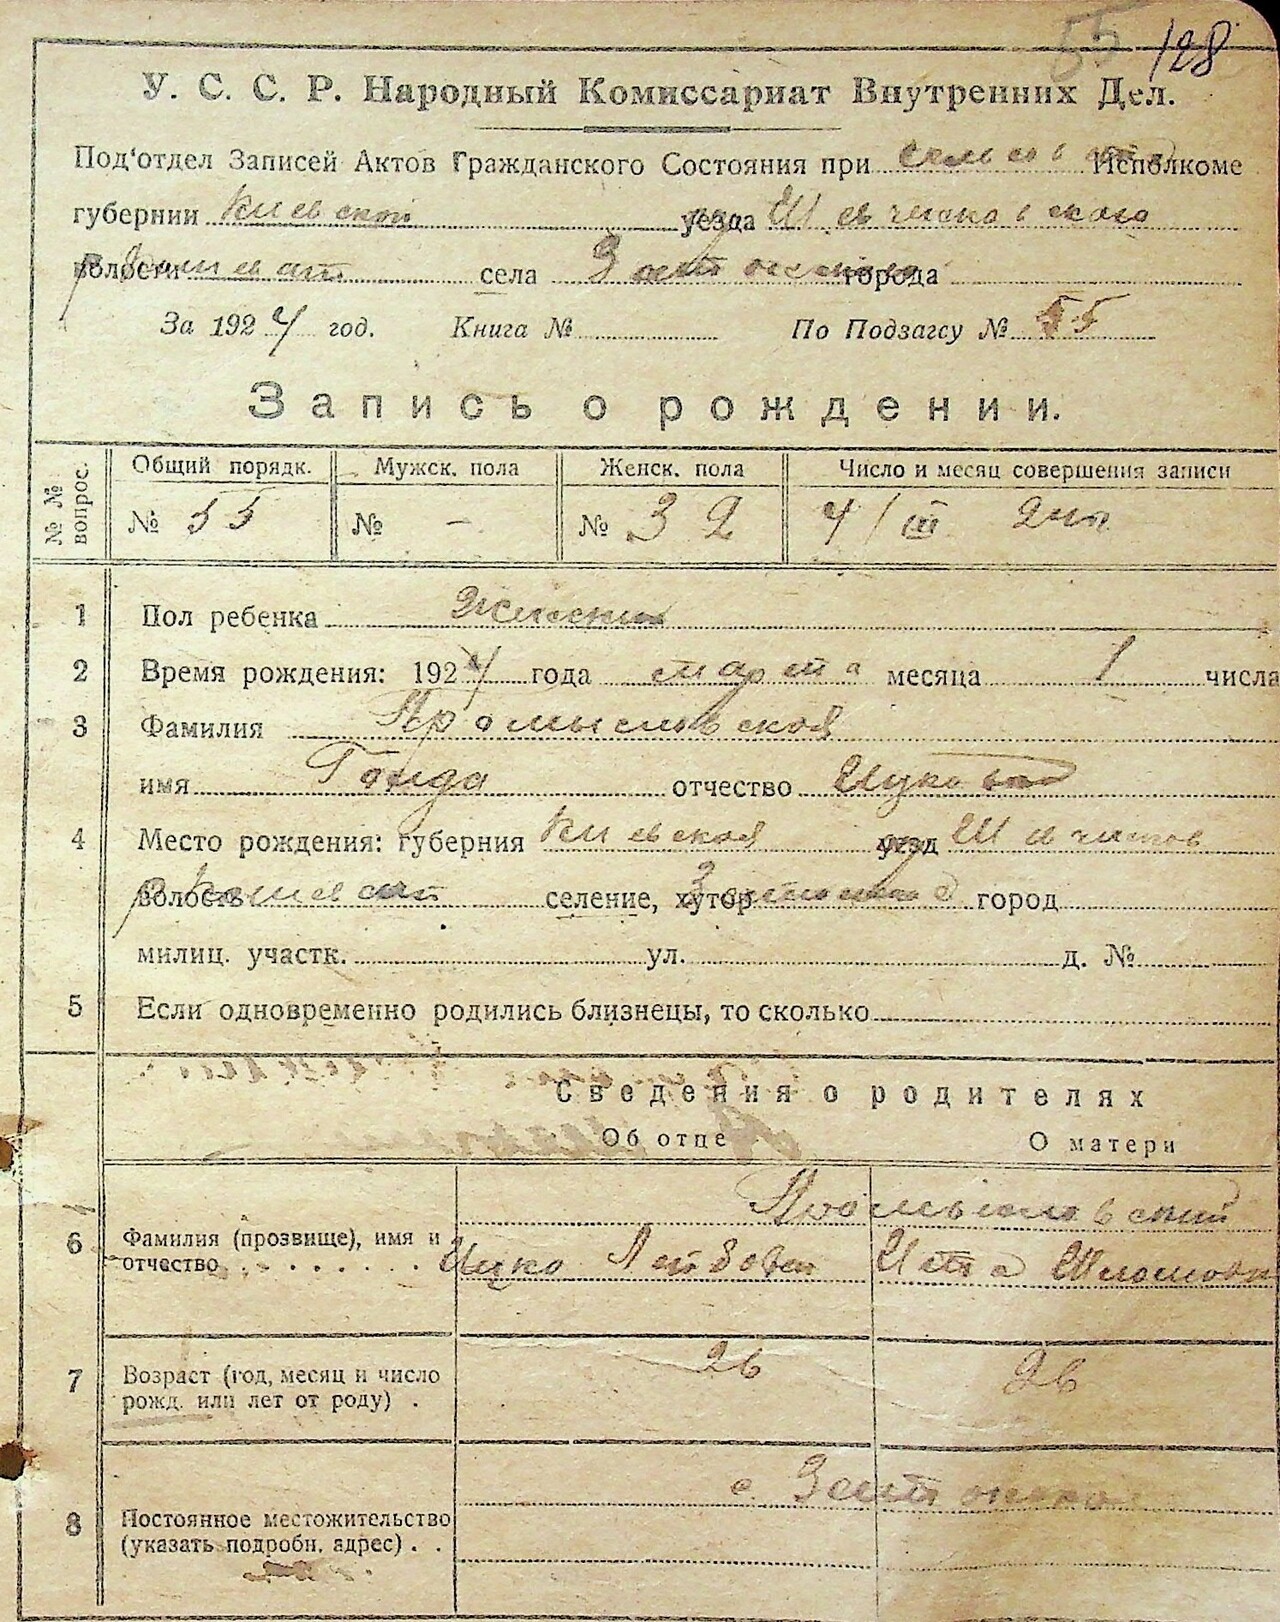 55 128
У. С. С. Р. Народный Комиссариат Внутренних Дел.
Под'отдел Записей Актов Гражданского Состояния при Исполкоме
губернии Киевской уезда Шевченковского
волости села города
За 1924 год. Книга № По Подзагсу № 55
Запись о рождении.
№ № вопрос.
Общий порядк. Мужск. пола Женск. пола Число и месяц совершения записи
№ 55 № – № 32 4/III дня
1 Пол ребенка женский
2 Время рождения: 1924 года марта месяца 1 числа
3 Фамилия Промысловская
имя отчество Ицковна
4 Место рождения: губерния Киевская уезд Шевченков
волость селение, хутор город
милиц. участк. ул. д. №
5 Если одновременно родились близнецы, то сколько
Сведения о родителях
Об отце О матери
Промысловский
6 Фамилия (прозвище), имя и
отчество Ицко Лейбович Шломовн
7 Возраст (год, месяц и число 26 26
рожд. или лет от роду) .
с.
8 Постоянное местожительство
(указать подробн. адрес) . .